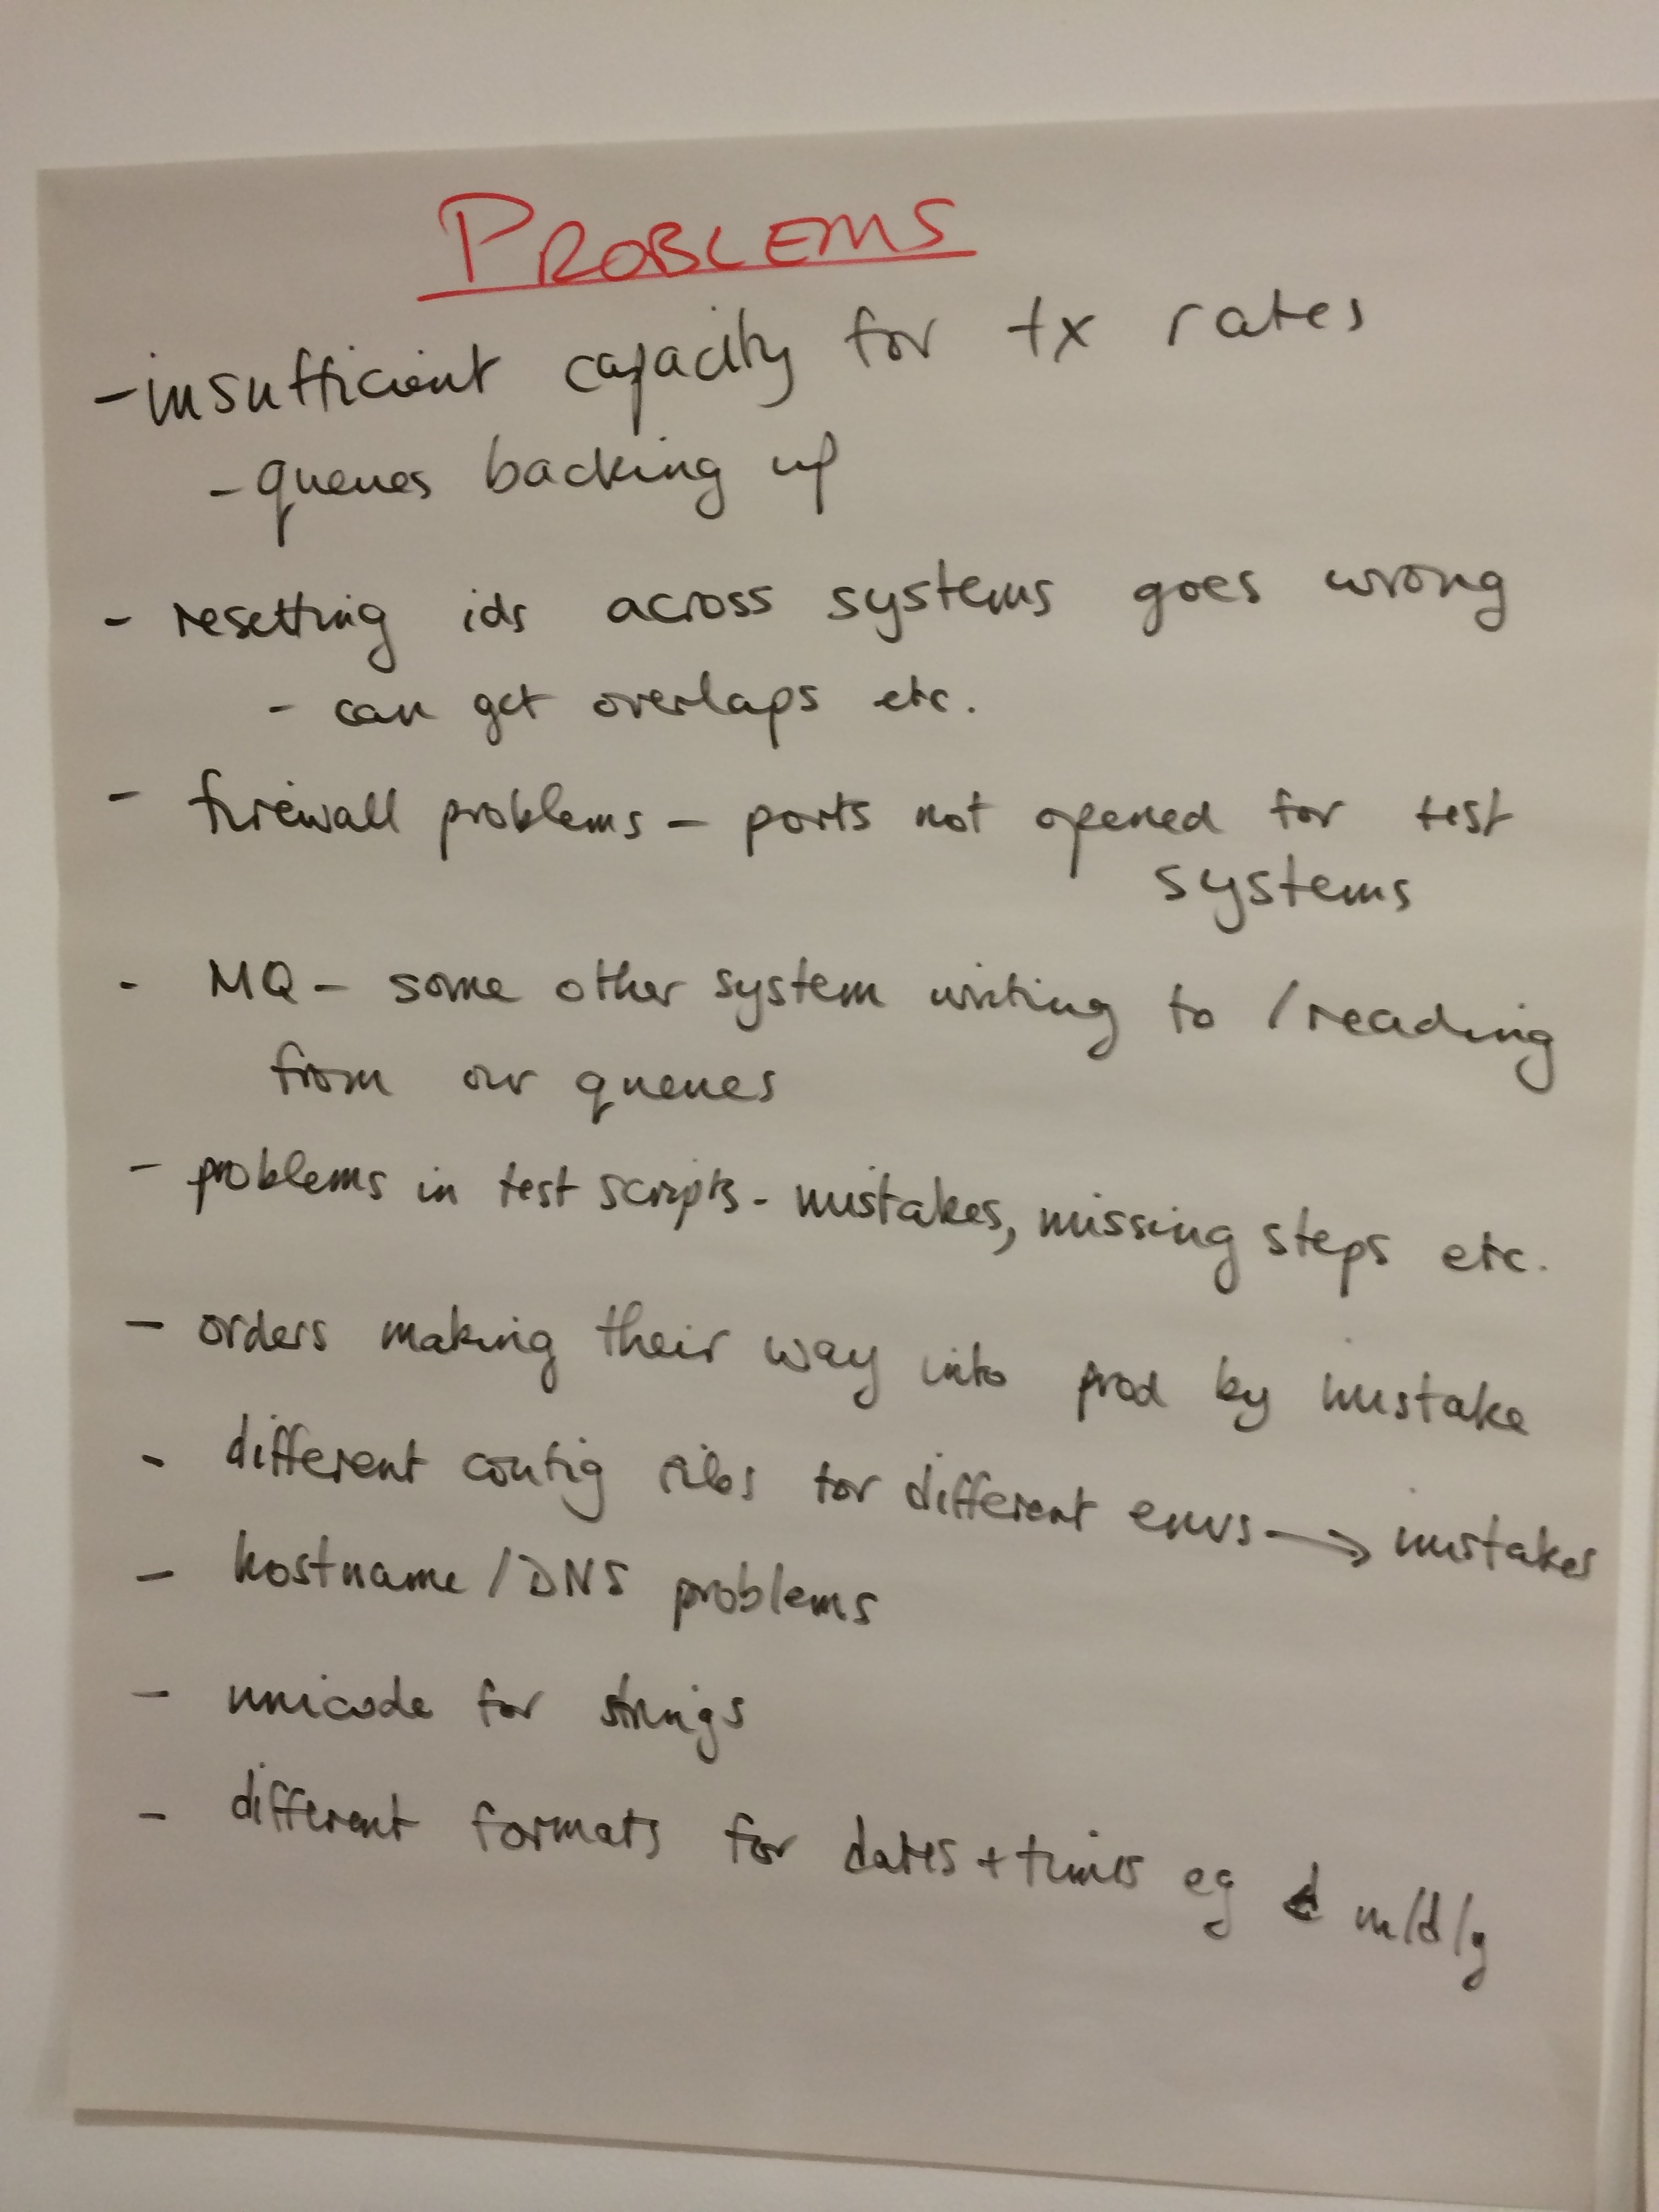 PROBLEMS
- insufficient capacity for tx rates
- queues backing up
- resetting ids across systems goes wrong
- can get overlaps etc.
- firewall problems - ports not opened for test
systems
- MQ - some other system writing to / reading
from our queues
- problems in test scripts - mistakes, missing steps etc.
- orders making their way into prod by mistake
- different config files for different envs → mistakes
- hostname / DNS problems
- unicode for strings
- different formats for dates + times eg m/d/y